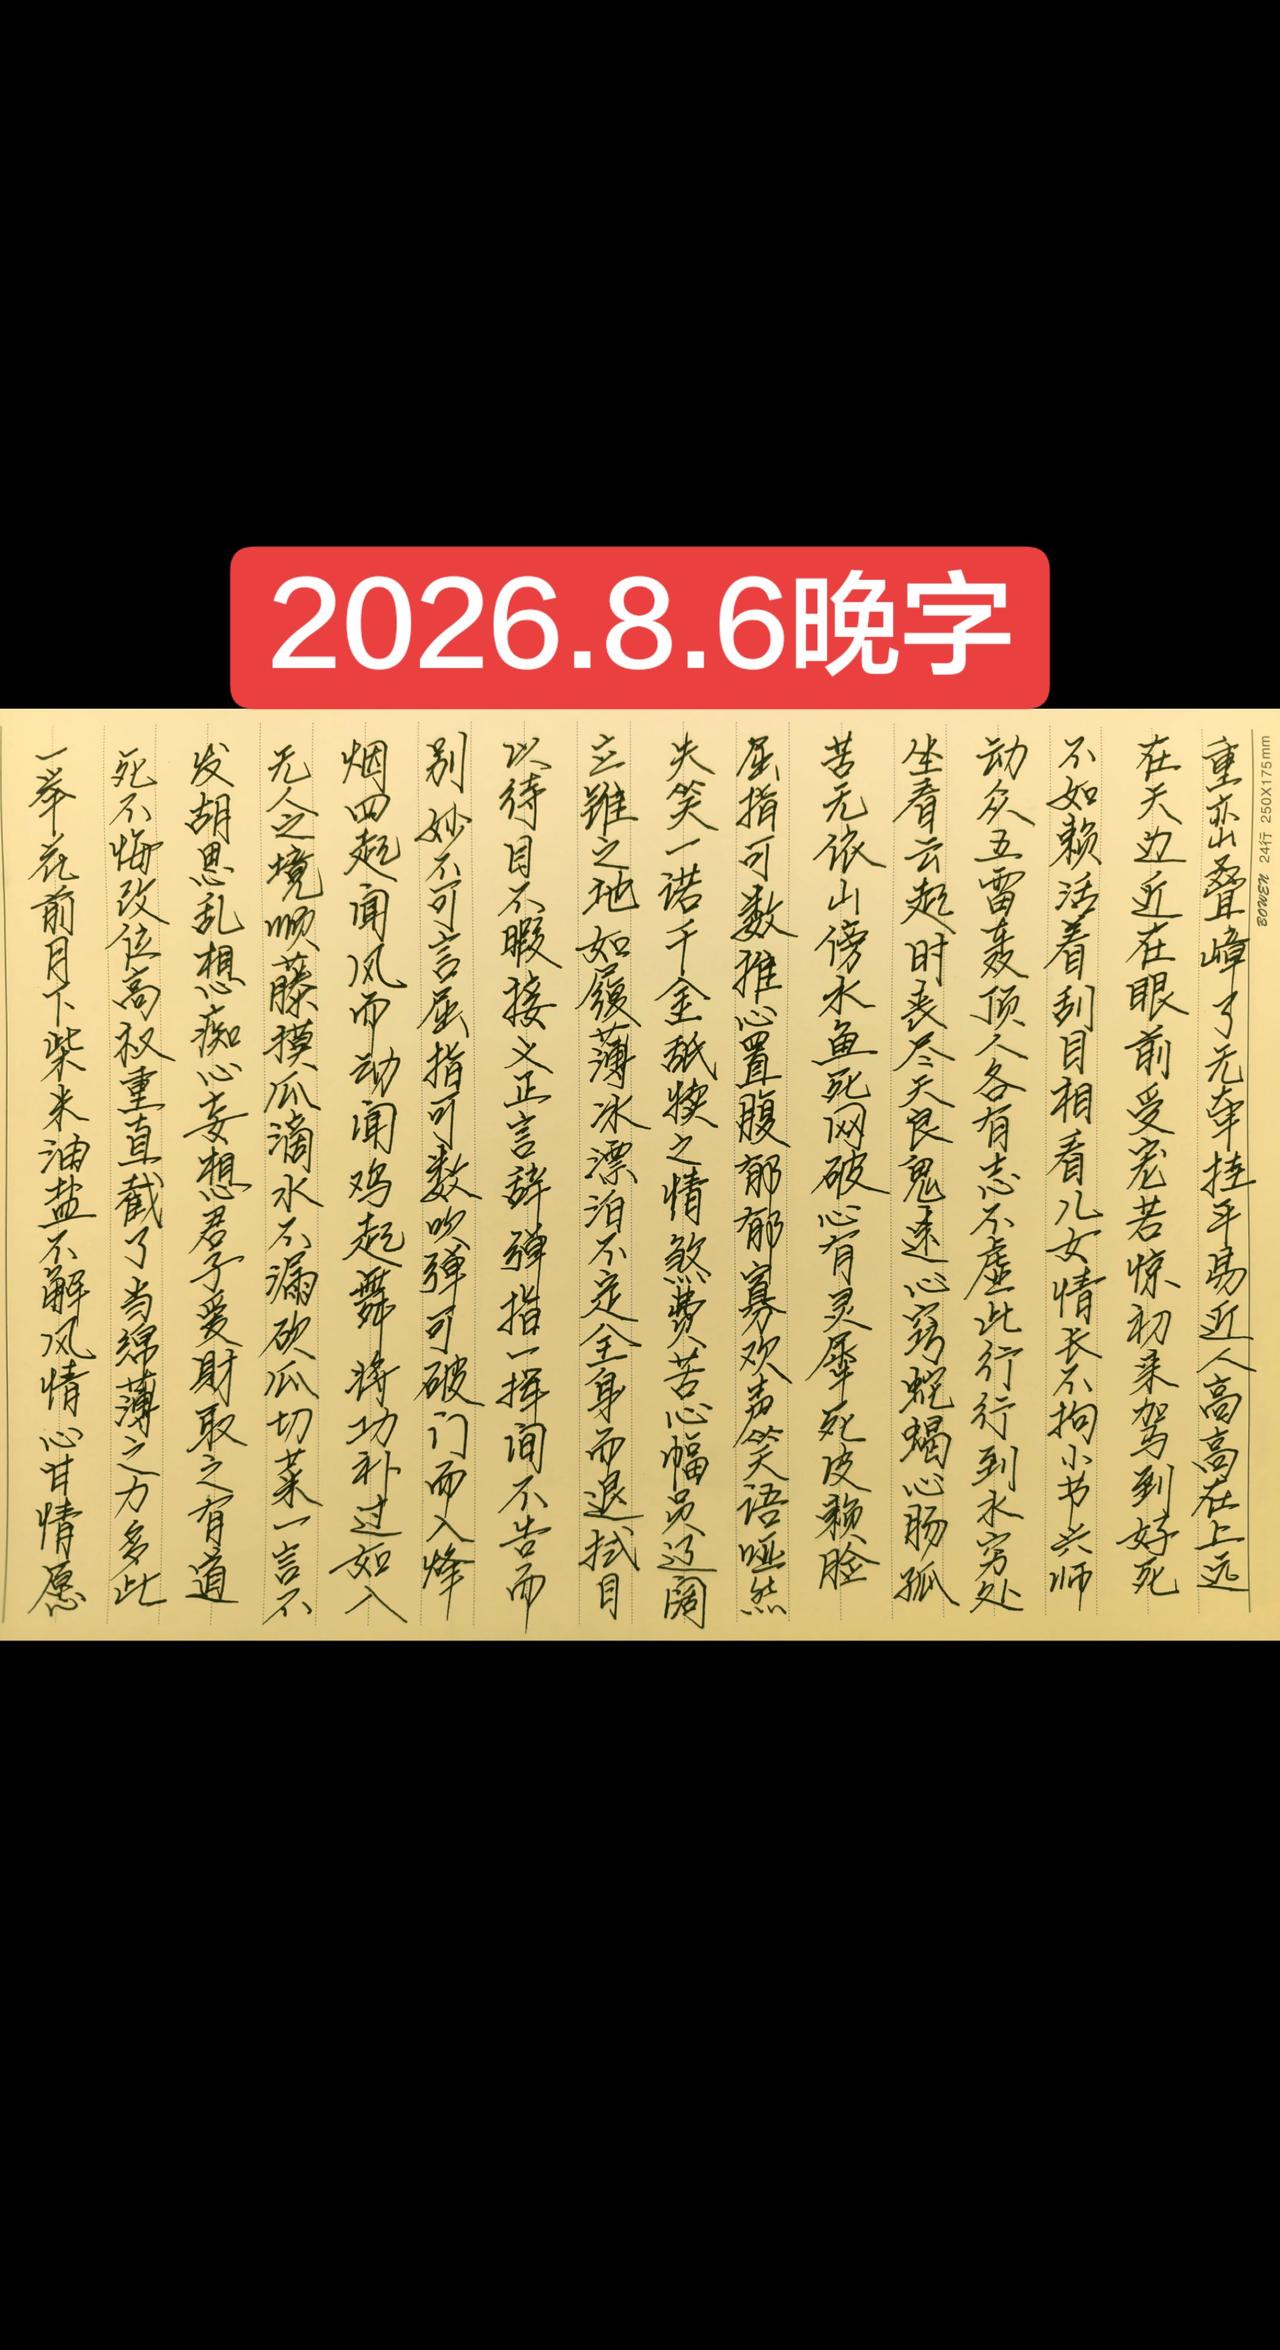 2026.8.6晚字
BOWEN 24行 250X175mm
重峦叠嶂了无牵挂平易近人高高在上远
在天边近在眼前受宠若惊初来驾到好死
不如赖活着刮目相看儿女情长不拘小节兴师
动众五雷轰顶人各有志不虚此行行到水穷处
坐看云起时丧尽天良鬼迷心窍蛇蝎心肠孤
苦无依山傍水鱼死网破心有灵犀死皮赖脸
屈指可数推心置腹郁郁寡欢声笑语哑然
失笑一诺千金舐犊之情煞费苦心幅员辽阔
立锥之地如履薄冰漂泊不定全身而退拭目
以待目不暇接义正言辞弹指一挥间不告而
别妙不可言屈指可数吹弹可破门而入烽
烟四起闻风而动闻鸡起舞将功补过如入
无人之境顺藤摸瓜滴水不漏砍瓜切菜一言不
发胡思乱想痴心妄想君子爱财取之有道
死不悔改位高权重直截了当绵薄之力多此
一举花前月下柴米油盐不解风情心甘情愿